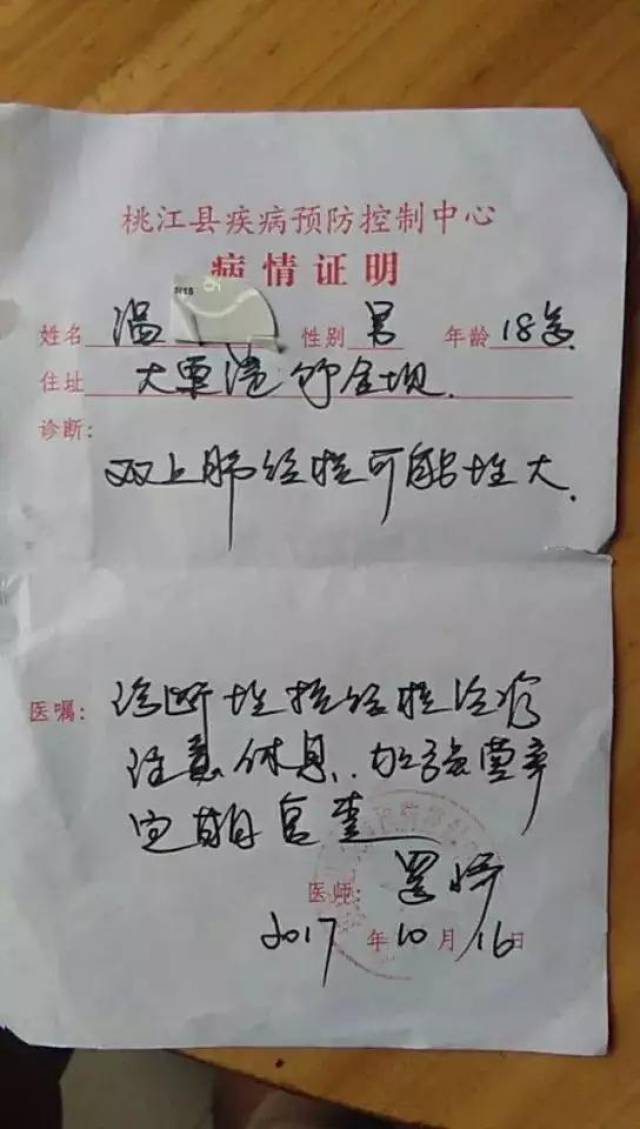 桃江县疾病预防控制中心
病情证明
姓名 温 性别 男 年龄 18岁
住址 大栗港
诊断：
双上肺结核可能性大.
医嘱： 诊断性抗结核治疗
注意休息，加强营养
定期复查
医师：
2017年10月16日